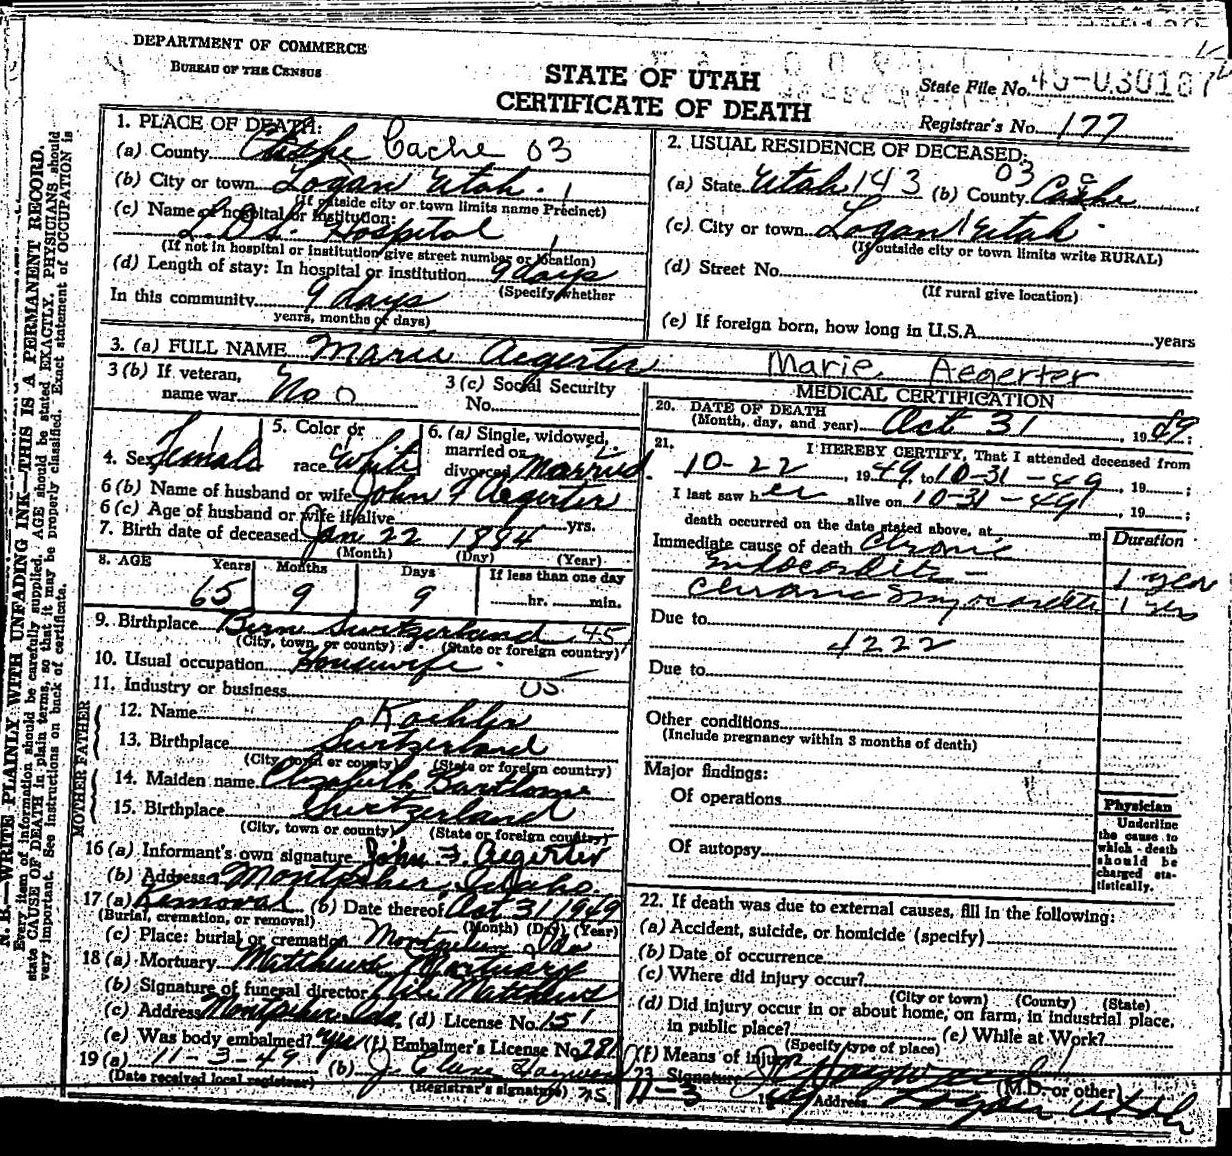 DEPARTMENT OF COMMERCE
BUREAU OF THE CENSUS
STATE OF UTAH
CERTIFICATE OF DEATH
State File No. 49-030187
Registrar's No. 177
N. B.—WRITE PLAINLY WITH UNFADING INK—THIS IS A PERMANENT RECORD.
Every item of information should be carefully supplied. AGE should be stated EXACTLY. PHYSICIANS should
state CAUSE OF DEATH in plain terms, so that it may be properly classified. Exact statement of OCCUPATION is
very important. See instructions on back of certificate.
1. PLACE OF DEATH:
(a) County Cache 03
(b) City or town Logan Utah. 1
(If outside city or town limits name Precinct)
(c) Name of hospital or institution:
L.D.S. Hospital 1
(If not in hospital or institution give street number or location)
(d) Length of stay: In hospital or institution 9 days
(Specify whether
In this community 9 days
years, months or days)
2. USUAL RESIDENCE OF DECEASED:
(a) State Utah 143 (b) County 03 Cache
(c) City or town Logan Utah.
(If outside city or town limits write RURAL)
(d) Street No.
(If rural give location)
(e) If foreign born, how long in U.S.A. years
3. (a) FULL NAME Marie Aegerter Marie Aegerter
3 (b) If veteran,
name war No
3 (c) Social Security
No.
4. Sex Female
5. Color or
race White
6. (a) Single, widowed,
married or
divorced Married
6 (b) Name of husband or wife John F Aegerter
6 (c) Age of husband or wife if alive yrs.
7. Birth date of deceased Jan 22 1884
(Month) (Day) (Year)
8. AGE Years Months Days If less than one day
65 9 9 hr. min.
9. Birthplace Bern Switzerland 45
(City, town or county) (State or foreign country)
10. Usual occupation Housewife
11. Industry or business
FATHER
12. Name Koehler
13. Birthplace Switzerland
(City, town or county) (State or foreign country)
MOTHER
14. Maiden name Elizabeth Bartlome
15. Birthplace Switzerland
(City, town or county) (State or foreign country)
16 (a) Informant's own signature John F. Aegerter
(b) Address Montpelier, Idaho.
17 (a) Removal (b) Date thereof Oct 31 1949
(Burial, cremation, or removal) (Month) (Day) (Year)
(c) Place: burial or cremation Montpelier Ida
18 (a) Mortuary Matthews Mortuary
(b) Signature of funeral director Matthews
(c) Address Montpelier Ida. (d) License No. 151
(e) Was body embalmed? yes (f) Embalmer's License No. 281
19 (a) 11-3-49 (b) J. Clare Hayward
(Date received local registrar) (Registrar's signature)
MEDICAL CERTIFICATION
20. DATE OF DEATH
(Month, day, and year) Oct 31 1949;
21. I HEREBY CERTIFY, That I attended deceased from
10-22, 1949, to 10-31-49, 19 ;
I last saw her alive on 10-31-49, 19 ;
death occurred on the date stated above, at m
Duration
Immediate cause of death Chronic
Endocarditis — 1 year
Chronic Myocarditis 1 yrs
Due to
4222
Due to
Other conditions
(Include pregnancy within 3 months of death)
Major findings:
Of operations
Of autopsy
Physician
Underline
the cause to
which death
should be
charged sta-
tistically.
22. If death was due to external causes, fill in the following:
(a) Accident, suicide, or homicide (specify)
(b) Date of occurrence
(c) Where did injury occur?
(City or town) (County) (State)
(d) Did injury occur in or about home, on farm, in industrial place,
in public place? (e) While at Work?
(Specify type of place)
(f) Means of injury
23. Signature Hayward
(M.D. or other)
11-3 Address Logan Utah